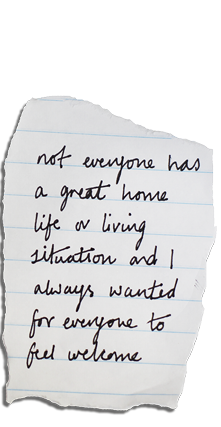 not everyone has
a great home
life or living
situation and I
always wanted
for everyone to
feel welcome